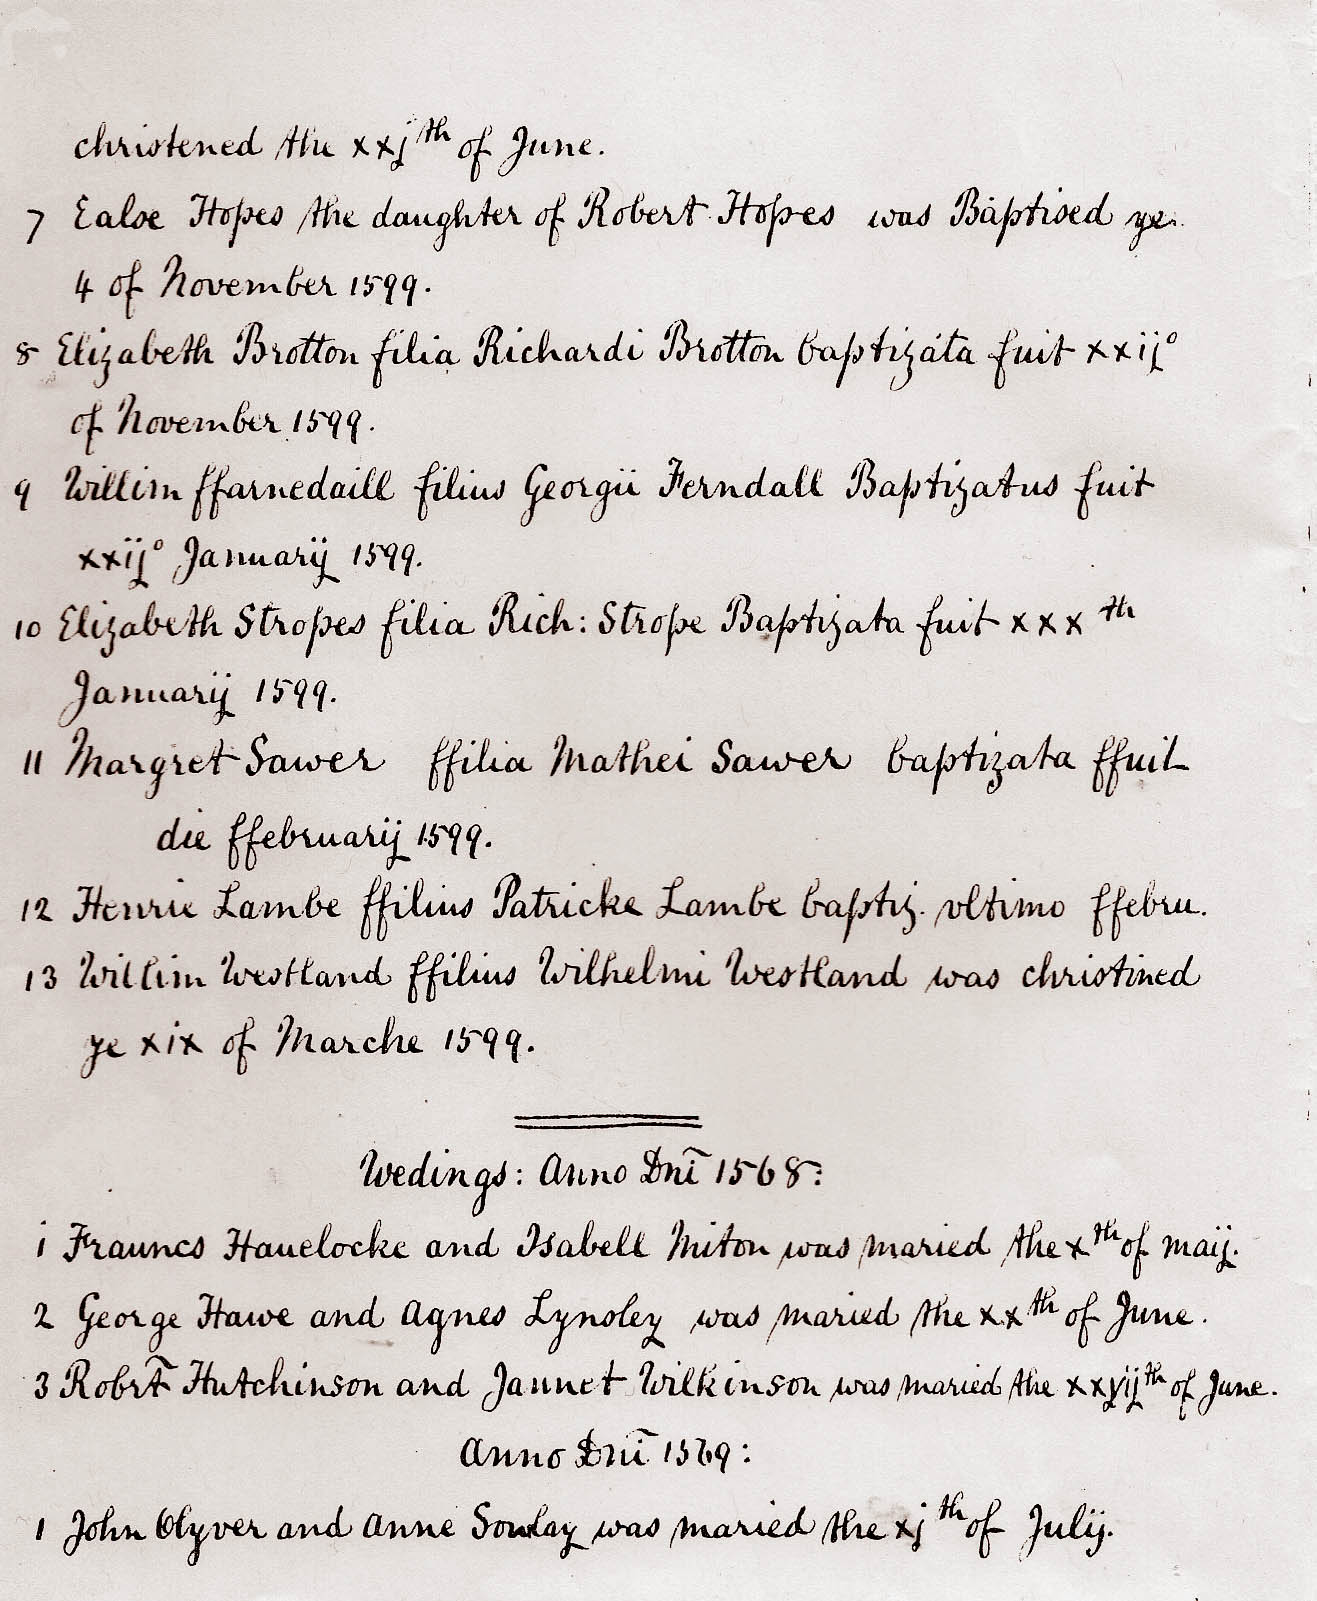 christened the xxjth of June.
7 Ealse Hopes the daughter of Robert Hopes was Baptised ye
4 of November 1599.
8 Elizabeth Brotton filia Richardi Brotton baptizata fuit xxijo
of November 1599.
9 Willim ffarnedaill filius Georgii Ferndall Baptizatus fuit
xxijo Januarij 1599.
10 Elizabeth Stropes filia Rich: Strope Baptizata fuit xxxth
Januarij 1599.
11 Margret Sawer ffilia Mathei Sawer baptizata ffuit
die ffebruarij 1599.
12 Henrie Lambe ffilius Patricke Lambe baptiz. vltimo ffebru.
13 Willim Westland ffilius Wilhelmi Westland was christined
ye xix of Marche 1599.
Wedings: Anno Dnĩ 1568:
1 Frauncs Hauelocke and Isabell Miton was maried the xth of maij.
2 George Hawe and Agnes Lynsley was maried the xxth of June.
3 Robrt̃ Hutchinson and Jannet Wilkinson was maried the xxvijth of June.
Anno Dnĩ 1569:
1 John Olyver and Anne Sowlay was maried the xjth of Julij.